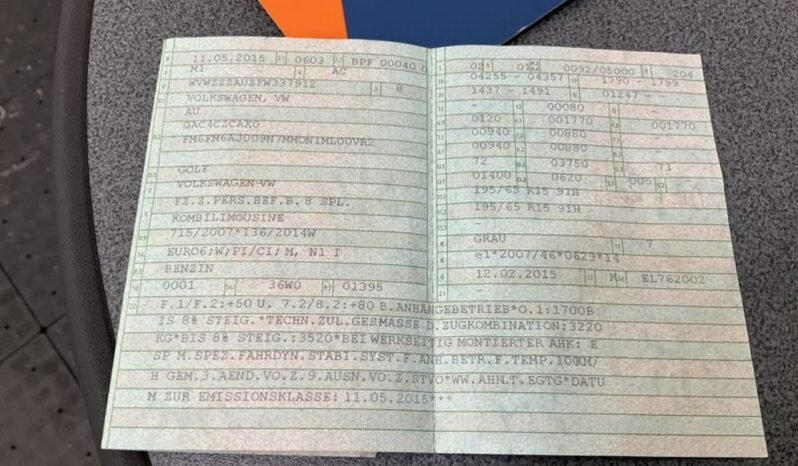 11.05.2015 0603 BPF 00040
M1 AC
WVWZZZAUZFW337912 8
VOLKSWAGEN, VW
AU
GAC4CZCAX0
FM6FM6AJ009N7MMON1ML00VR2
GOLF
VOLKSWAGEN-VW
FZ.Z.PERS.BEF.B. 8 SPL.
KOMBILIMOUSINE
715/2007*136/2014W
EURO6;W;PI/CI; M, N1 I
BENZIN
0001 36W0 01395
02 01 0092/05000 204
04255 - 04357 1790 - 1799
1437 - 1491 01247 -
- 00080 -
0120 001770 001770
00940 00880 -
00940 00880 -
72 03750 71
01400 0620 005
195/65 R15 91H
195/65 R15 91H
-
-
GRAU 7
e1*2007/46*0623*14
12.02.2015 K EL762002
-
F.1/F.2:+50 U. 7.2/8.2:+80 B.ANHÄNGEBETRIEB*O.1:1700B
IS 8% STEIG.*TECHN.ZUL.GESMASSE D.ZUGKOMBINATION:3220
KG*BIS 8% STEIG.:3520*BEI WERKSEITIG MONTIERTER AHK: E
SP M.SPEZ.FAHRDYN.STABI.SYST.F.ANH.BETR.F.TEMP.100KM/
H GEM.3.AEND.VO.Z.9.AUSN.VO.Z.STVO*WW.AHMLT.EGTG*DATU
M ZUR EMISSIONSKLASSE: 11.05.2015***